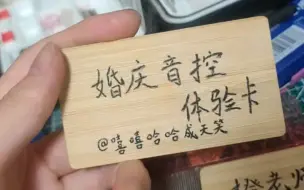 婚庆音控
体验卡
@嘻嘻哈哈成天笑